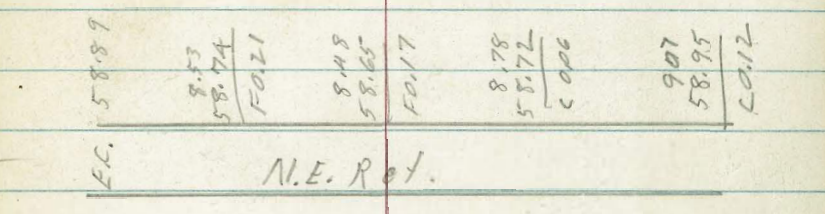 58.89
8.53
58.74
F0.21
8.48
58.65
F0.17
8.78
58.72
C 0.06
907
58.95
C0.12
E.C.
N.E. Ret.